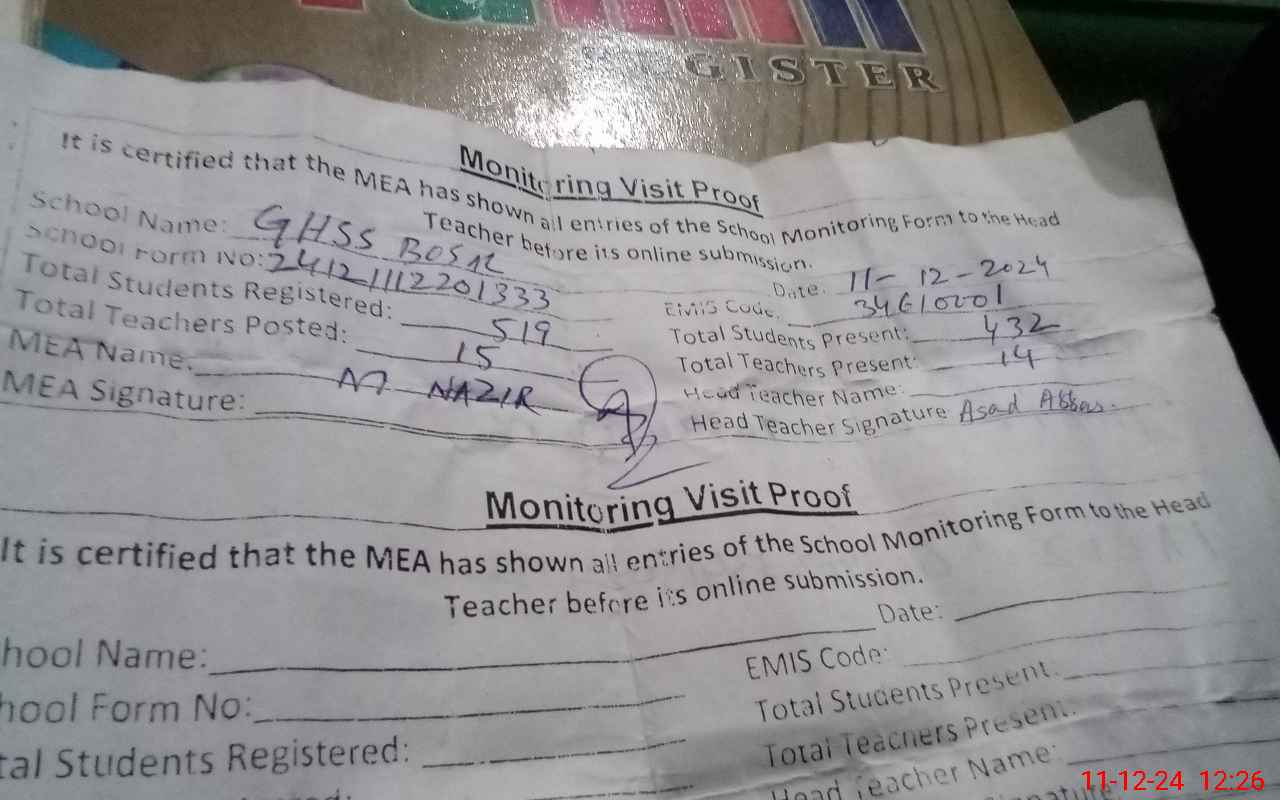 GISTER
Monitoring Visit Proof
It is certified that the MEA has shown all entries of the School Monitoring Form to the Head
Teacher before its online submission.
Date: 11-12-2024
School Name: GHSS BOSAL
EMIS Code: 34610001
School Form No: 24121112201333
Total Students Present: 432
Total Students Registered: 519
Total Teachers Present: 14
Total Teachers Posted: 15
Head Teacher Name:
MEA Name: M NAZIR
Head Teacher Signature Asad Abbas.
MEA Signature:
Monitoring Visit Proof
It is certified that the MEA has shown all entries of the School Monitoring Form to the Head
Teacher before its online submission.
Date:
hool Name:
EMIS Code:
hool Form No:
Total Students Present:
tal Students Registered:
Total Teachers Present:
Head Teacher Name:
11-12-24 12:26